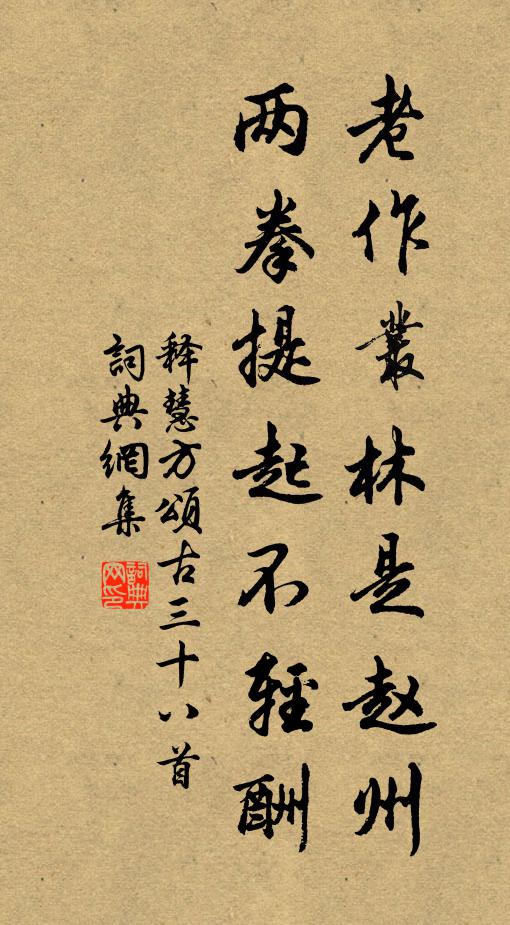 老作叢林是赵州
两拳提起不轻酬
释慧方頌古三十八首
詞典網集
詞典网印